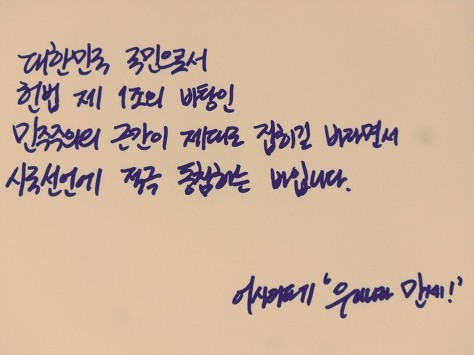 대한민국 국민으로서
헌법 제 1조의 바탕인
민주주의의 근간이 제대로 잡히길 바라면서
시국선언에 적극 동참하는 바입니다.
'우리나라 만세!'